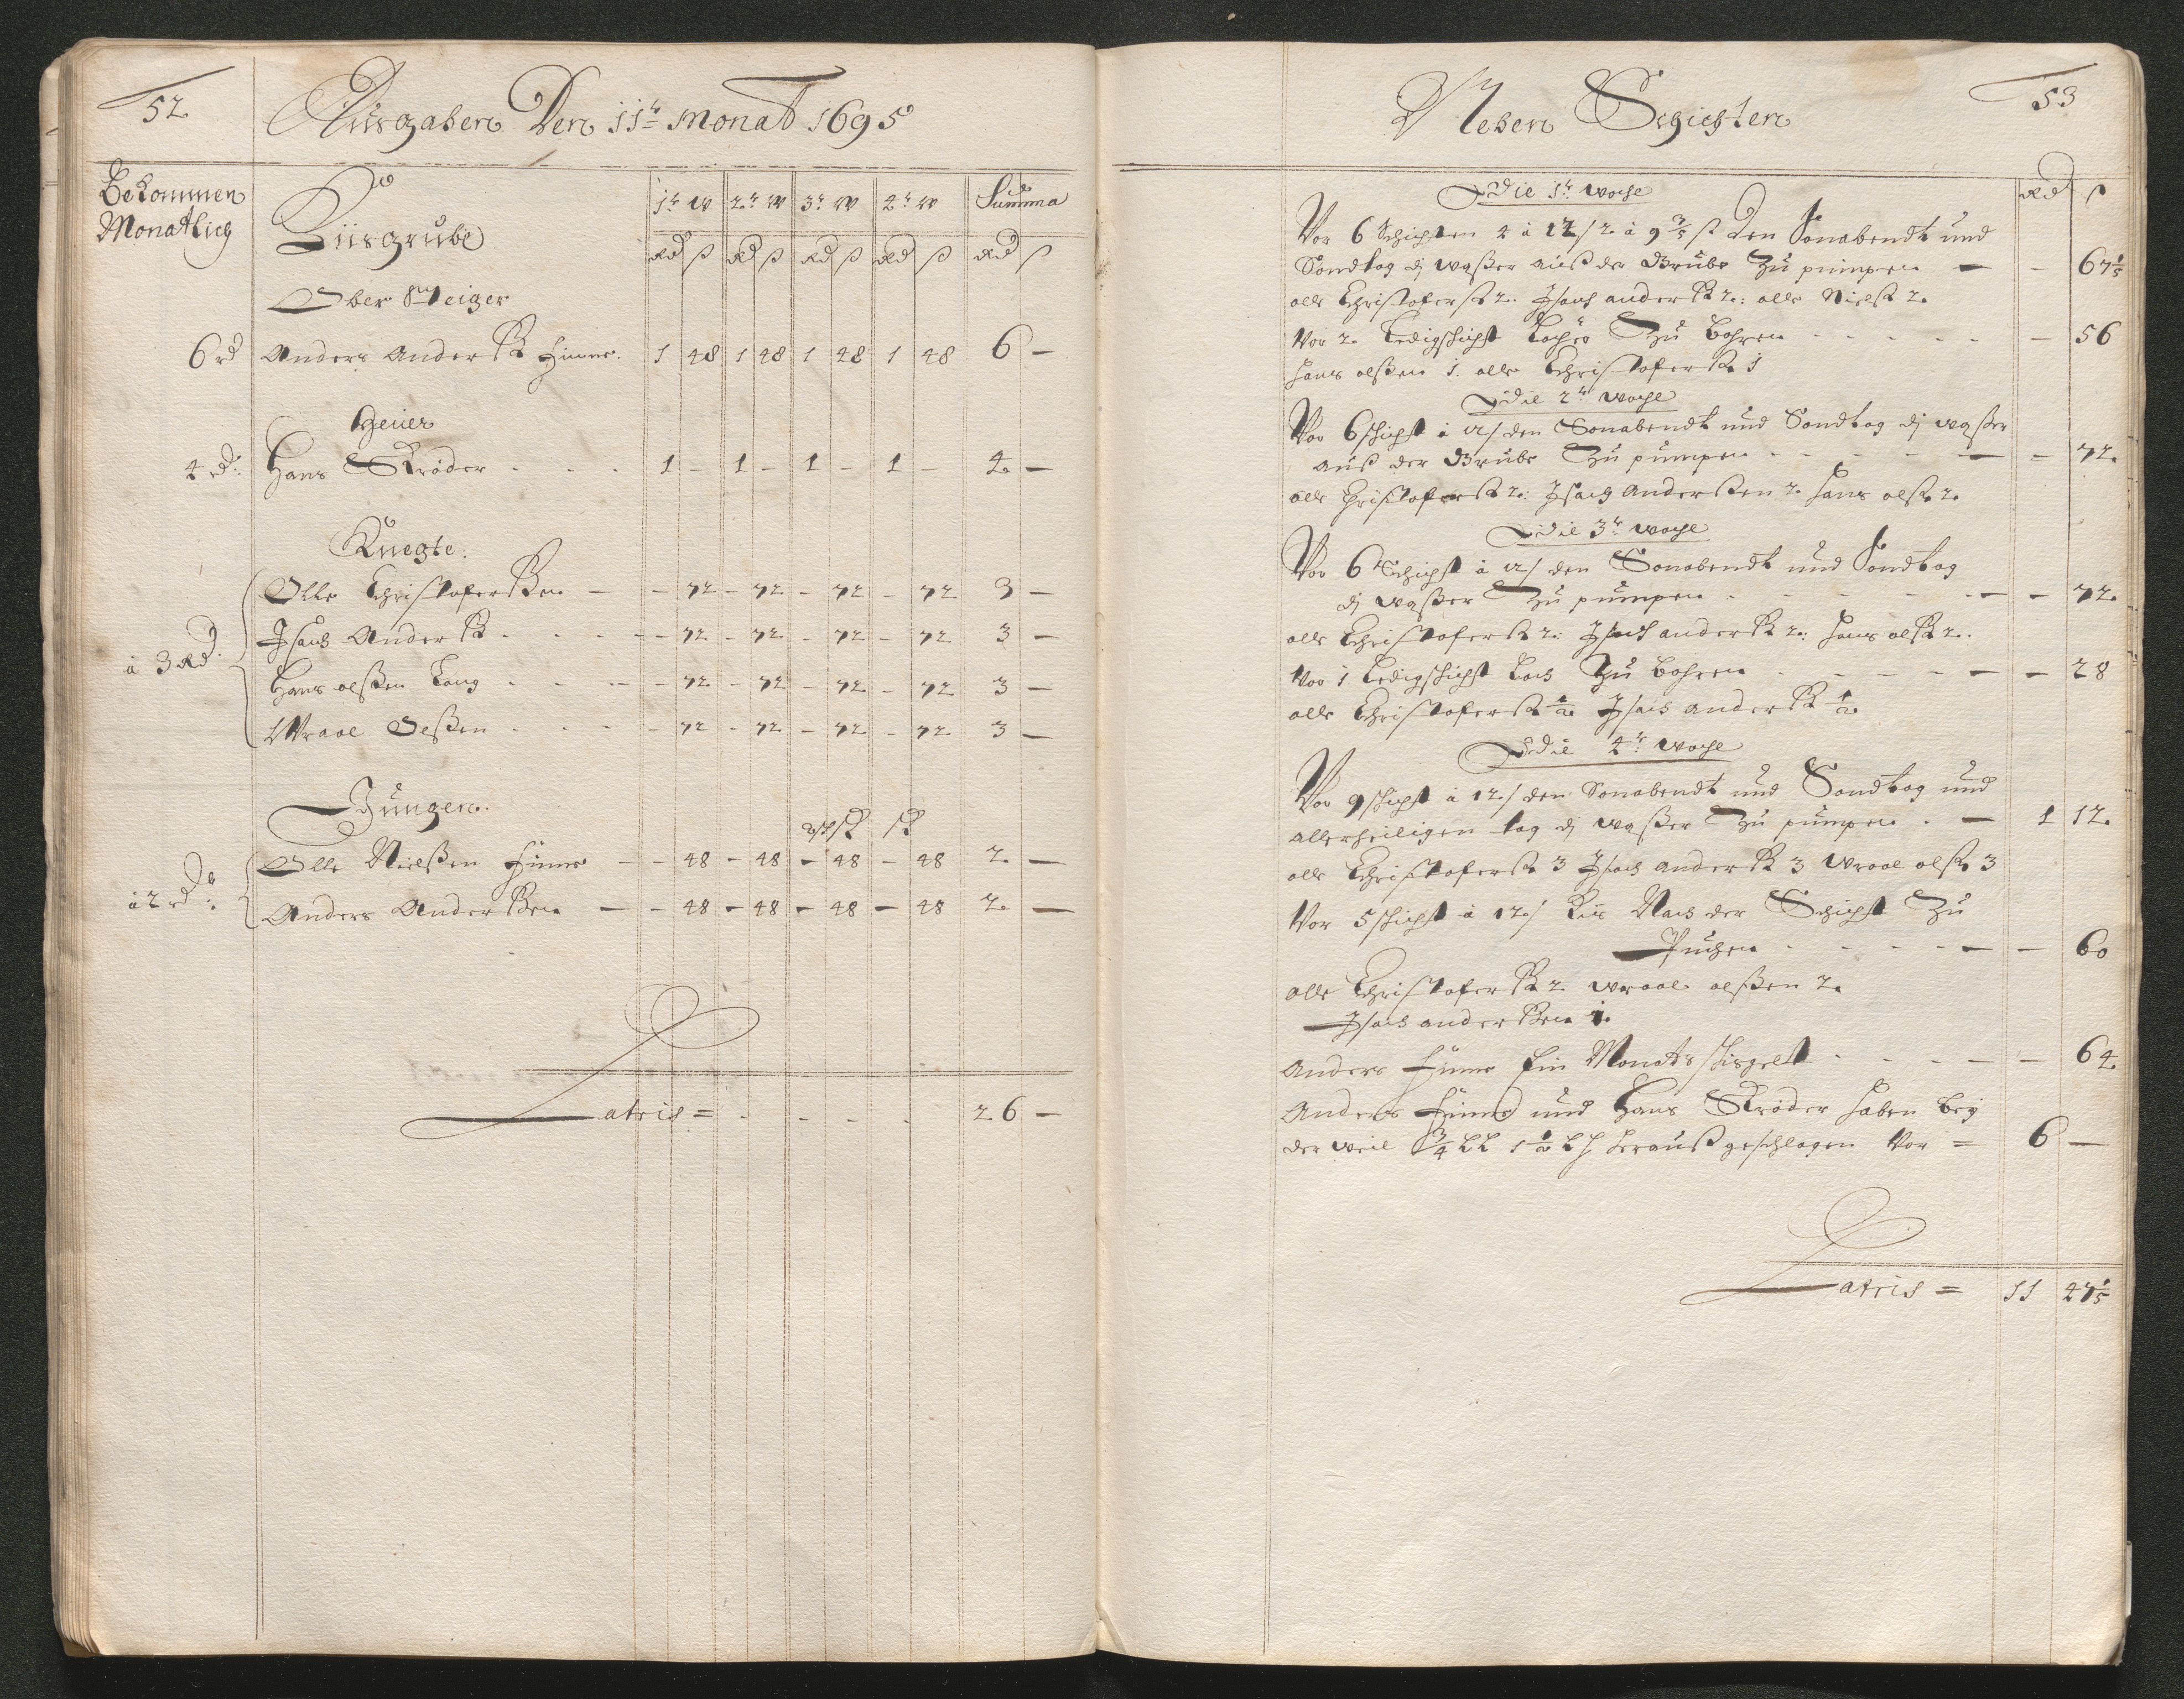 52
Ausgaben Den 11te Monat 1695
Bekommen
Monatlich
Kiisgrube
1te W 2te W 3te W 4te W Summa
Rd ß Rd ß Rd ß Rd ß Rd ß
Ober Steiger
6 rd Anders Anderß Hime. 1 48 1 48 1 48 1 48 6 —
Heuer
4 rd: Hans Skrøder - - - 1 - 1 - 1 - 1 - 4 —
Knegte:
à 3 Rd:
Olle Christoferßen — - 72 - 72 - 72 - 72 3 —
Isach Anderß - - - - 72 - 72 - 72 - 72 3 —
Hans olßen Lang - - - 72 - 72 - 72 - 72 3 —
Wraal Oelßen - - - - 72 - 72 - 72 - 72 3 —
Jungen.
à 2 rd:
Olle Nielßen Hime — - 48 - 48 - 48 - 48 2 —
Anders Anderßen — - 48 - 48 - 48 - 48 2 —
Latris = - - - - 26 —
53
Neben Schichten
Rd ß
Die 1te Woche
Vor 6 Schichten 4 à 12/ 2 à 9 3/5 ß Den Sonabendt und
Sondtag dj waßer auß der Grube Zu pumpen — - 67 1/5
olle Christoferß 2. Isach anderß 2: olle Nielß 2.
Vor 2 Ledigschicht Locher Zu bohren - - - - - 56
Hans olßen 1. olle Christoferß 1
Die 2te Woche
Vor 6 schicht à 12/ den Sonabendt und Sondtag dj waßer
auß der Grube Zu pumpen - - - - — - 72.
olle Christoferß 2: Isach Anderßen 2. Hans olß 2.
Die 3te Woche
Vor 6 Schicht à 12/ den Sonabendt und Sondtag
dj waßer Zu pumpen - - - - — - 72.
olle Christoferß 2: Isach anderß 2: Hans olß 2.
Vor 1 Ledigschicht Loch Zu bohren - - - - — - 28
olle Christoferß 1/2 Isach anderß 1/2
Die 4te Woche
Vor 9 schicht à 12/ den Sonabendt und Sondtag und
allerheiligen tag dj waßer Zu pumpen. — 1 12.
olle Christoferß 3 Isach anderß 3 Wraal olß 3
Vor 5 schicht à 12/ Kiis Nach der Schicht Zu
Puchen - - - - — - 60
olle Christoferß 2 Wraal olßen 2.
Isach anderßen 1.
Anders Hime Ein Monats - - - — - 64
Anders Hime und Hans Skrøder haben bey
der weil 3/4 LL 1 1/2 heraußgeschlagen Vor = 6 —
Latris = 11 47 1/5